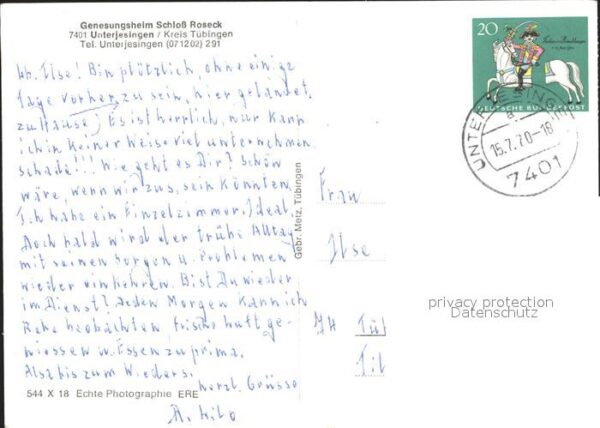 Genesungsheim Schloß Roseck
7401 Unterjesingen / Kreis Tübingen
Tel. Unterjesingen (07 12 02) 291
Lb. Ilse! Bin plötzlich, ohne einige
Tage vorher zu sein, hier gelandet.
zuhause, Es ist herrlich, nur kann
ich in keiner Weise viel unternehmen
schade!!! Wie geht es Dir? Schön
wäre, wenn wir zus. sein könnten.
Ich habe ein Einzelzimmer. Ideal.
Doch bald wird der frühe Alltag
mit seinen Sorgen u. Problemen
wieder einkehren. Bist Du wieder
im Dienst? Jeden Morgen kann ich
Rehe beobachten. Frische Luft ge-
niessen u. Essen zu prima.
Also bis zum Wieders.
herzl. Grüsse
544 X 18 Echte Photographie ERE
Gebr. Metz, Tübingen
20
DEUTSCHE BUNDESPOST
UNTERJESINGEN
a
15.7.70-18
7401
Frau
Ilse
Tüb
privacy protection
Datenschutz